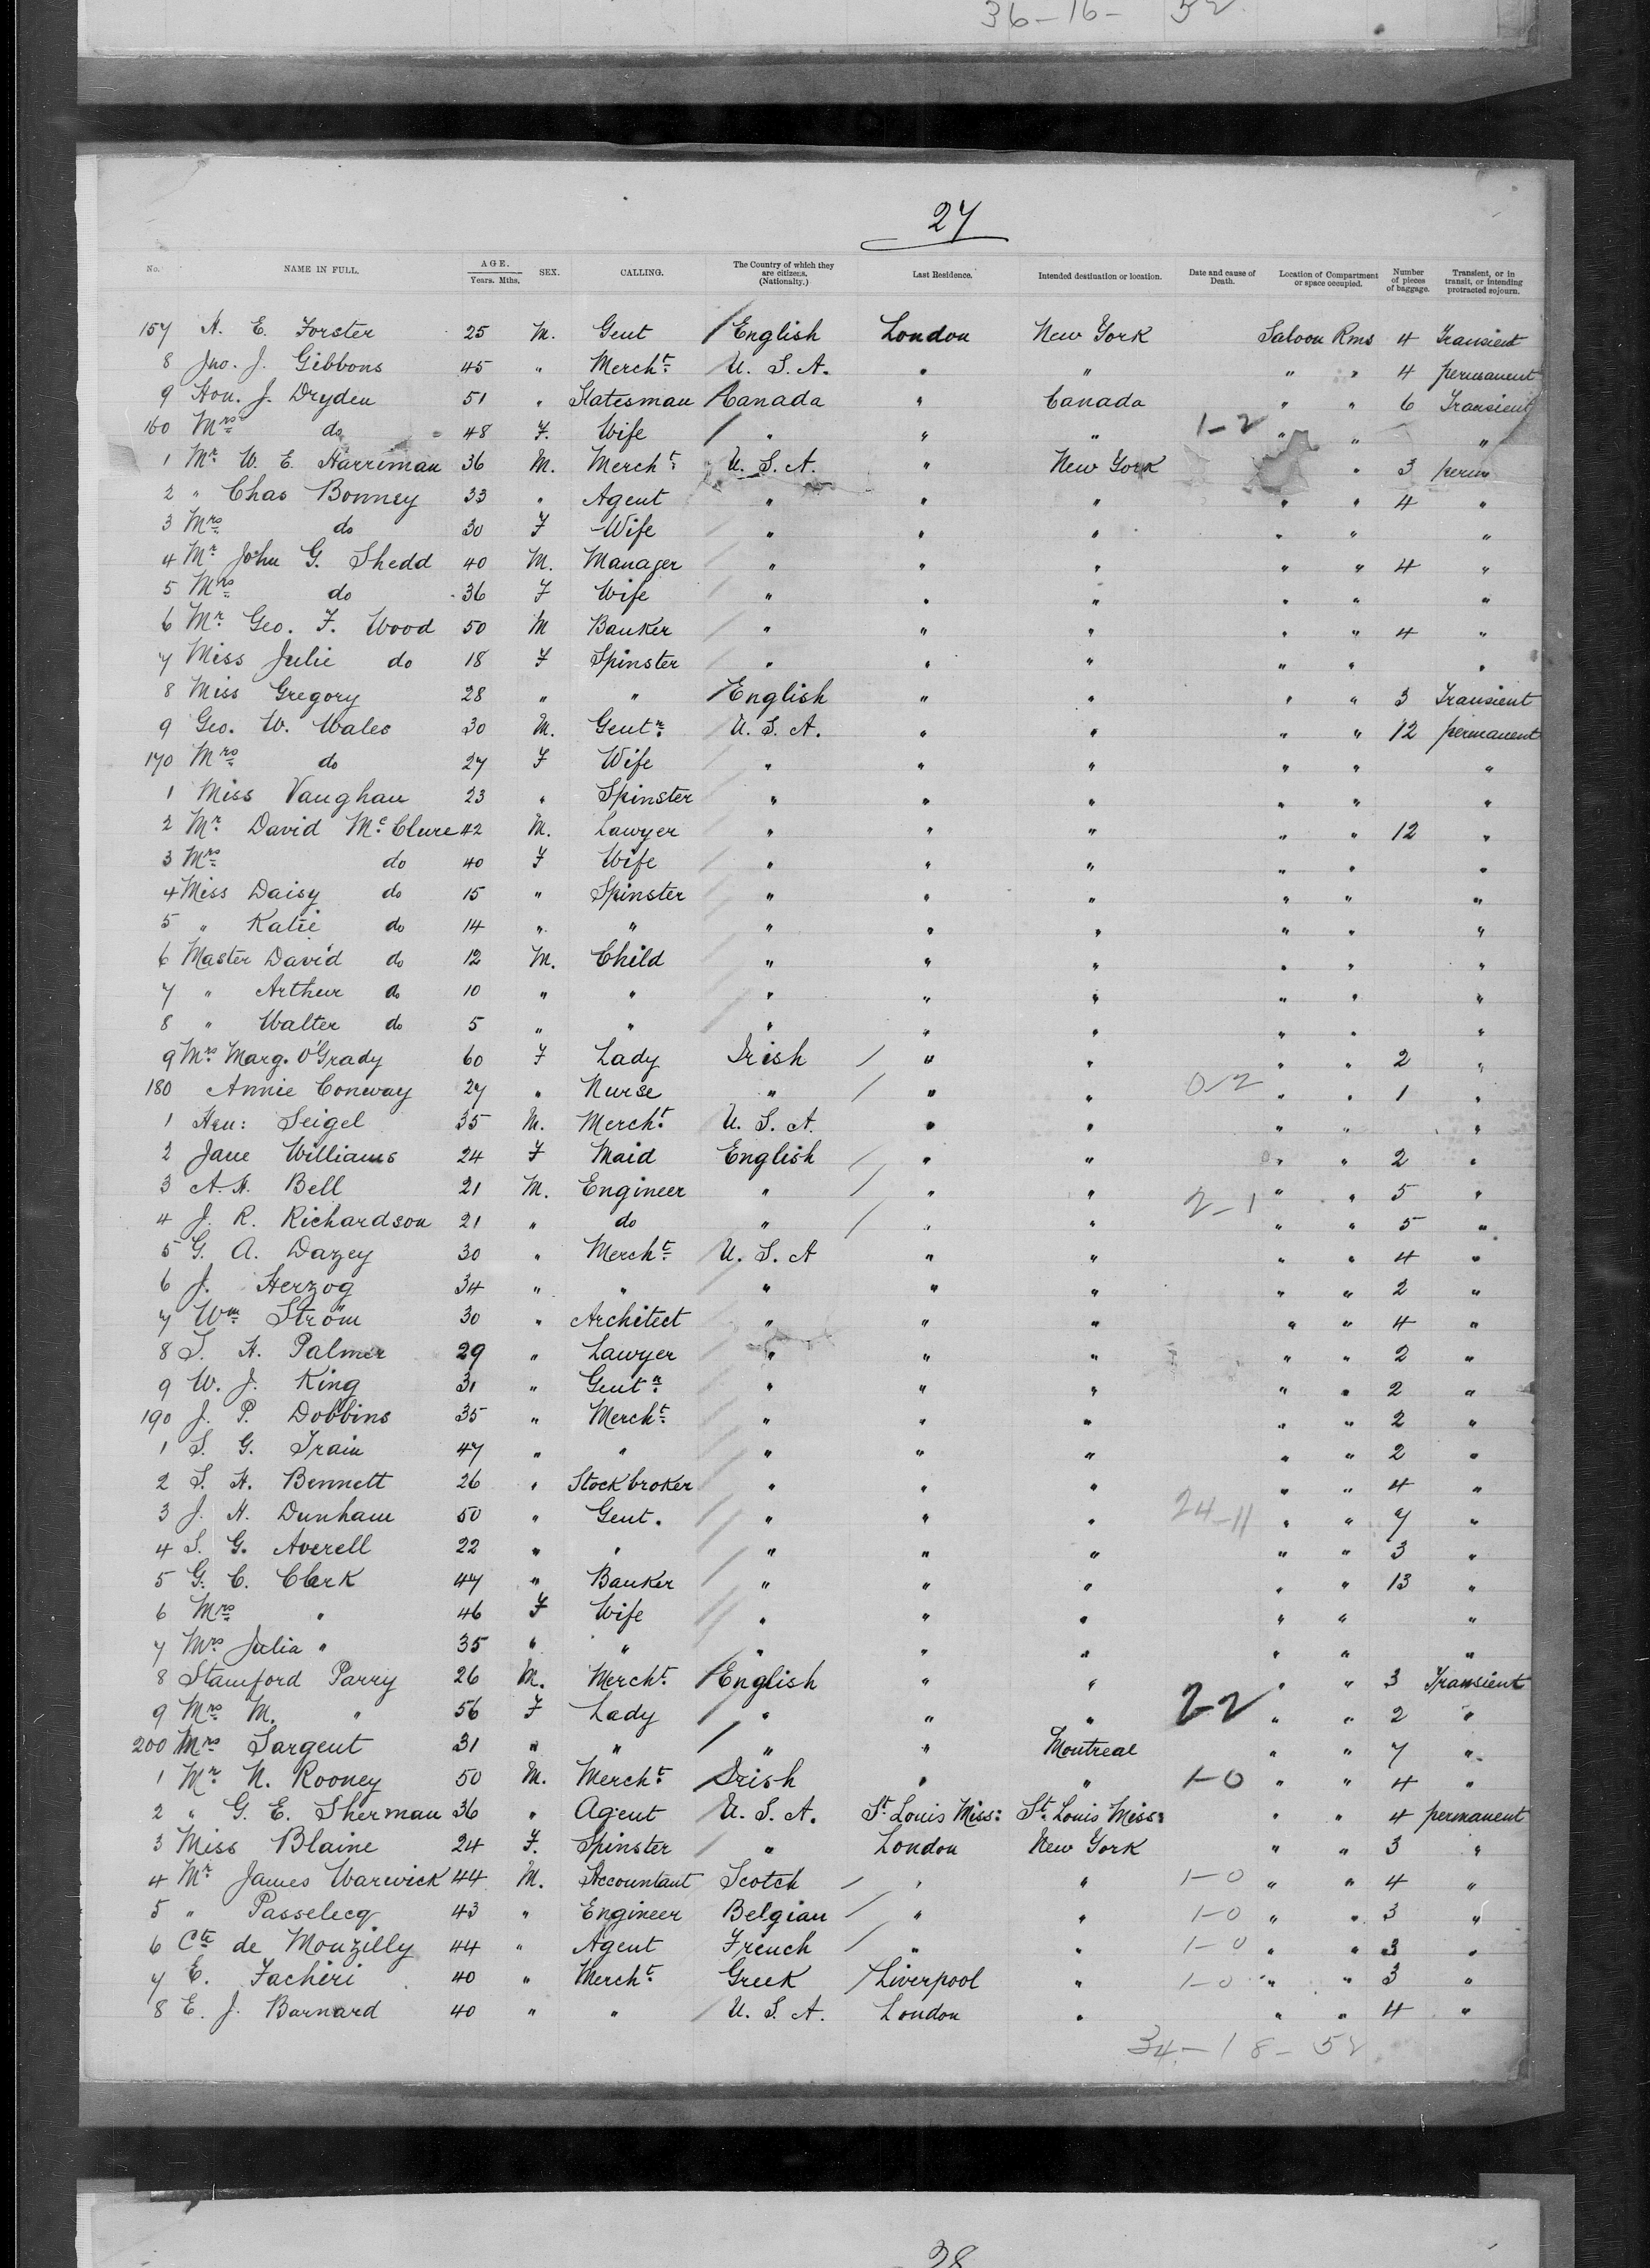 36-16- 52
27
No. NAME IN FULL. AGE. Years. Mths. SEX. CALLING. The Country of which they are citizens. (Nationalty.) Last Residence. Intended destination or location. Date and cause of Death. Location of Compartment or space occupied. Number of pieces of baggage. Transient, or in transit, or intending protracted sojourn.
157 H. E. Forster 25 M. Gent English London New York Saloon Rms 4 Transient
8 Jno. J. Gibbons 45 " Mercht. U. S. A. " " " " 4 permanent
9 Hon. J. Dryden 51 " Statesman Canada " Canada " " 6 Transient
160 Mrs do 48 F. Wife " " " 1-2 " " "
1 Mr W. E. Harriman 36 M. Mercht. U. S. A. " New York " 3 perm
2 " Chas Bonney 33 " Agent " " " " " 4 "
3 Mrs do 30 F Wife " " " " " "
4 Mr John G. Shedd 40 M. Manager " " " " " 4 "
5 Mrs do 36 F Wife " " " " " "
6 Mr Geo. F. Wood 50 M Banker " " " " " 4 "
7 Miss Julie do 18 F Spinster " " " " " "
8 Miss Gregory 28 " " English " " " " 3 Transient
9 Geo. W. Wales 30 M. Gentn. U. S. A. " " " " 12 permanent
170 Mrs do 27 F Wife " " " " " "
1 Miss Vaughan 23 " Spinster " " " " " "
2 Mr David McClure 42 M. Lawyer " " " " " 12 "
3 Mrs do 40 F Wife " " " " " "
4 Miss Daisy do 15 " Spinster " " " " " "
5 " Katie do 14 " " " " " " " "
6 Master David do 12 M. Child " " " " " "
7 " Arthur do 10 " " " " " " " "
8 " Walter do 5 " " " " " " " "
9 Mrs Marg. O'Grady 60 F Lady Irish " " " " 2 "
180 Annie Conway 27 " Nurse " " " 0-2 " " 1 "
1 Hen: Seigel 35 M. Mercht. U. S. A. " " " " "
2 Jane Williams 24 F Maid English " " " " 2 "
3 A. H. Bell 21 M. Engineer " " " 2-1 " " 5 "
4 J. R. Richardson 21 " do " " " " " 5 "
5 G. A. Dazey 30 " Mercht. U. S. A " " " " 4 "
6 J. Herzog 34 " " " " " " " 2 "
7 Wm Ström 30 " Architect " " " " " 4 "
8 S. H. Palmer 29 " Lawyer " " " " " 2 "
9 W. J. King 31 " Gentn. " " " " " 2 "
190 J. P. Dobbins 35 " Mercht. " " " " " 2 "
1 S. G. Train 47 " " " " " " " 2 "
2 S. H. Bennett 26 " Stockbroker " " " " " 4 "
3 J. H. Dunham 50 " Gent. " " " 24-11 " " 7 "
4 S. G. Averell 22 " " " " " " " 3 "
5 G. C. Clark 47 " Banker " " " " " 13 "
6 Mrs " 46 F Wife " " " " " "
7 Mrs Julia " 35 " " " " " " " "
8 Stamford Parry 26 M. Mercht. English " " " " 3 Transient
9 Mrs M. " 56 F Lady " " " 2-2 " " 2 "
200 Mrs Sargent 31 " " " " Montreal " " 7 "
1 Mr N. Rooney 50 M. Mercht. Irish " " 1-0 " " 4 "
2 " G. E. Sherman 36 " Agent U. S. A. St. Louis Miss: St. Louis Miss: " " 4 permanent
3 Miss Blaine 24 F. Spinster " London New York " " 3 "
4 Mr James Warwick 44 M. Accountant Scotch " " 1-0 " " 4 "
5 " Passelecq 43 " Engineer Belgian " " 1-0 " " 3 "
6 Cte de Mouzilly 44 " Agent French " " 1-0 " " 3 "
7 E. Fachiri 40 " Mercht. Greek Liverpool " 1-0 " " 3 "
8 E. J. Barnard 40 " " U. S. A. London " " " 4 "
34-18-52
28